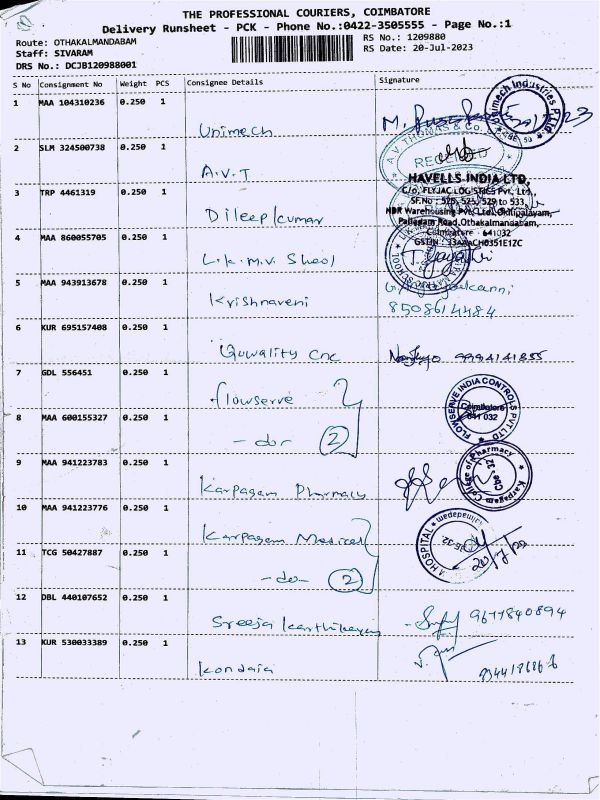 THE PROFESSIONAL COURIERS, COIMBATORE
Delivery Runsheet - PCK - Phone No.:0422-3505555 - Page No.:1
Route: OTHAKALMANDABAM
RS No.: 1209880
Staff: SIVARAM
RS Date: 20-Jul-2023
DRS No.: DCJB120988001
S No Consignment No Weight PCS Consignee Details Signature
1 MAA 104310236 0.250 1
Unimech
2 SLM 324500738 0.250 1
A.V.T
RECEIVED
HAVELLS INDIA LTD.
C/o. FLYJAC LOGISTICS Pvt. Ltd.,
SF.No : 525, 526, 529 to 533,
3 TRP 4461319 0.250 1
NDR Warehousing Pvt. Ltd., Okilipalayam,
Dileepkumar
Palladam Road, Othakalmandabam,
Coimbatore - 641032
4 MAA 860055705 0.250 1
GSTIN : 33AAACH0351E1ZC
L.K.M.V. Shool
5 MAA 943913678 0.250 1
Krishnaveni
8508614484
6 KUR 695157408 0.250 1
Quwality Cnc
9994141855
7 GDL 556451 0.250 1
flowserve
FLOWSERVE INDIA CONTROLS PVT LTD
Coimbatore
641 032
8 MAA 600155327 0.250 1
- do - 2
9 MAA 941223783 0.250 1
Karpagam Pharmacy
Karpagam College of Pharmacy
Cbe 32
10 MAA 941223776 0.250 1
Karpagam Medical
HOSPITAL
11 TCG 50427887 0.250 1
- do - 2
12 DBL 440107652 0.250 1
Sreeja Karthikeyan
9677840894
13 KUR 530033389 0.250 1
Kondaia